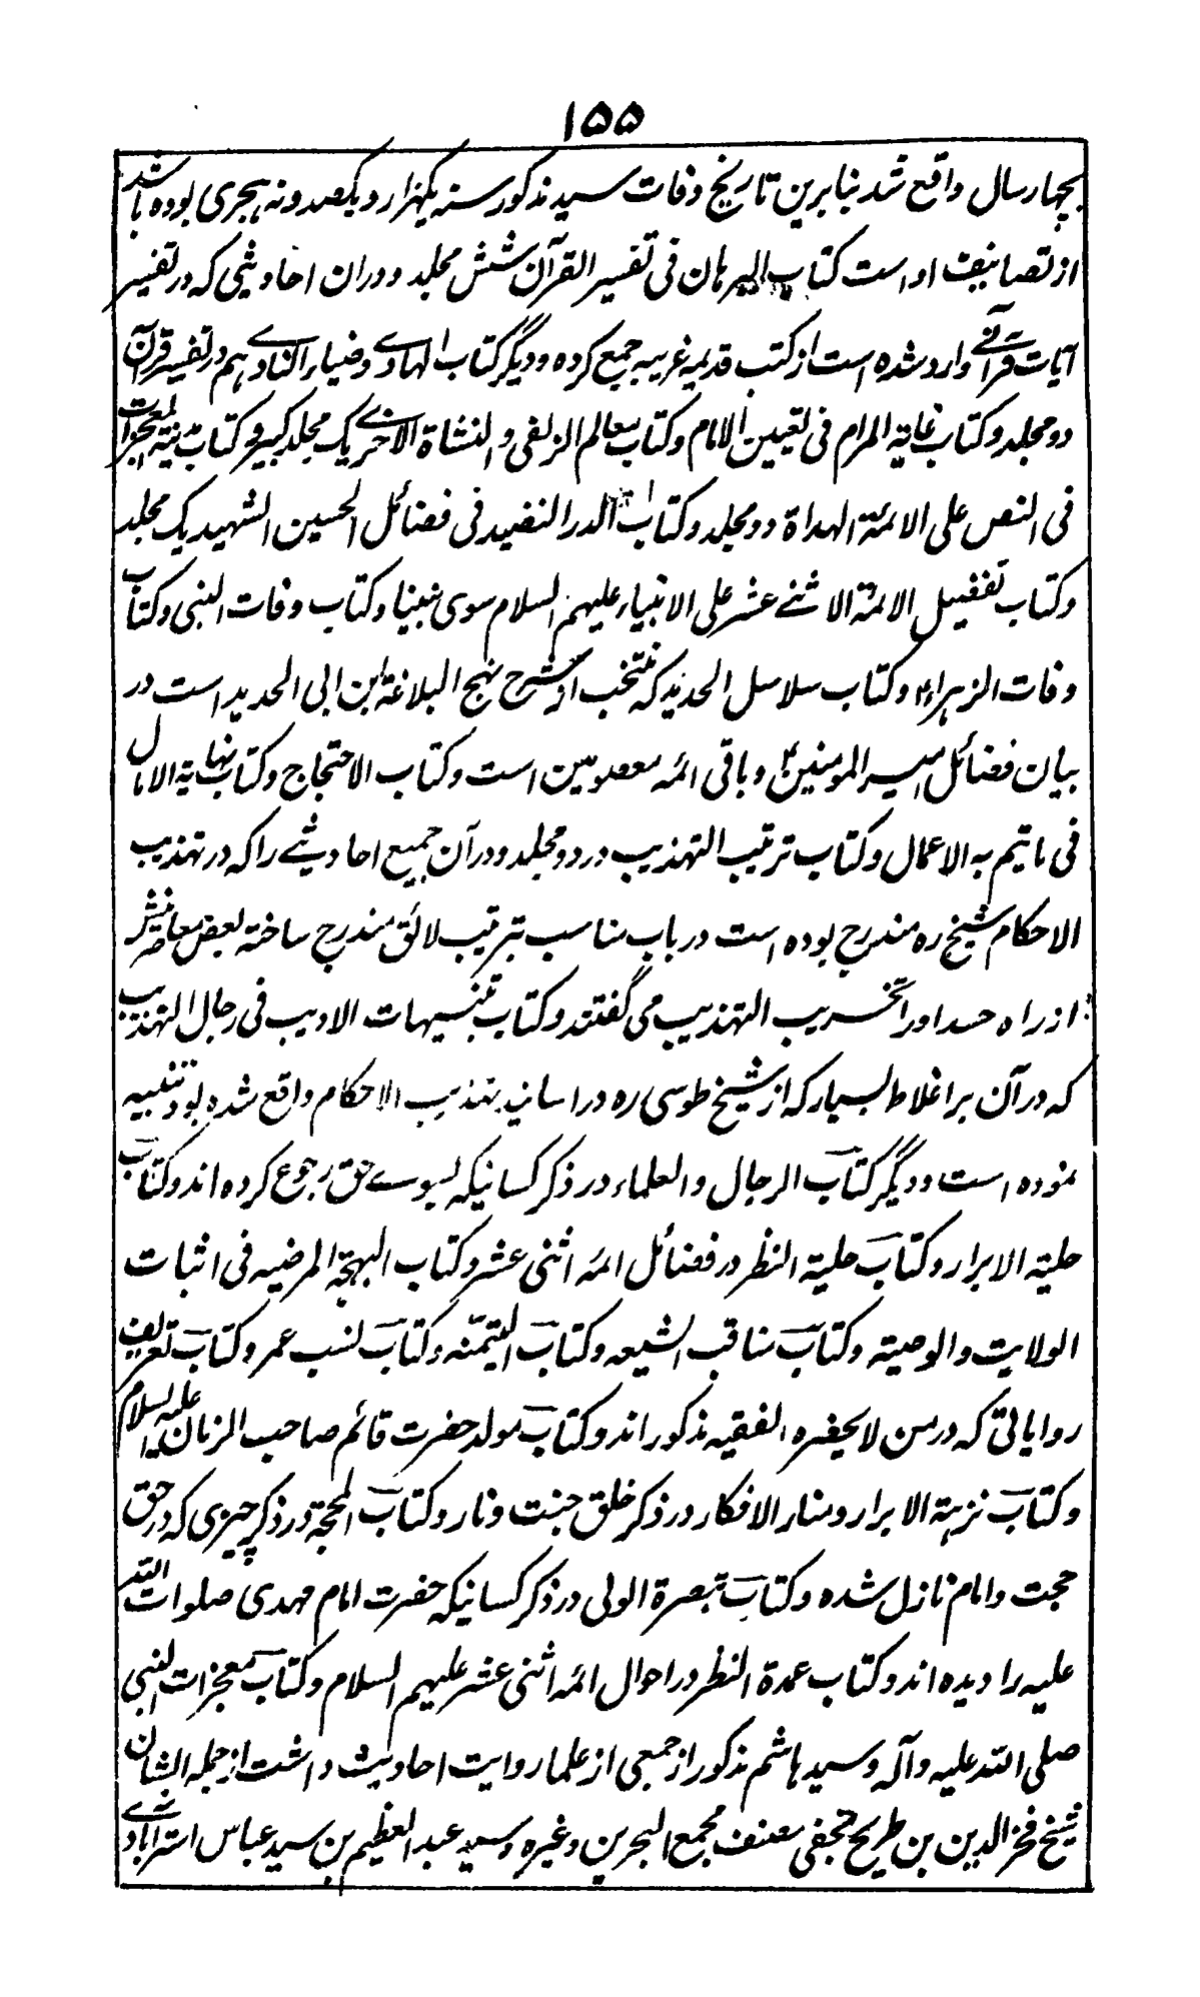 ۱۵۵
بچهار سال واقع شد بنابرین تاریخ وفات سید مذکور سنه یکهزار و یکصد و نه هجری بوده باشد
از تصانیف او است کتاب البرهان فی تفسیر القرآن شش مجلد و دران احادیثی که در تفسیر
آیات قرآنے وارد شده است از کتب قدیمه غریبه جمع کرده و دیگر کتاب الهادے و ضیاء النادے هم در تفسیر قرآن
دو مجلد و کتاب غایة المرام فی تعیین الامام و کتاب معالم الزلفی و النشاة الاخرے یک مجلد کبیر و کتاب مدینة المعجزات
فی النص علی الائمة الهداة دو مجلد و کتاب الدر النضید فی فضائل الحسین الشهید یک مجلد
و کتاب تفضیل الائمة الاثنے عشر علی الانبیاء علیهم السلام سوی نبینا و کتاب وفات النبی و کتاب
وفات الزهراء و کتاب سلاسل الحدید که منتخب از شرح نهج البلاغة ابن ابی الحدید است در
بیان فضائل امیر المومنین و باقی ائمه معصومین است و کتاب الاحتجاج و کتاب نهایة الامال
فی ما یتم به الاعمال و کتاب ترتیب التهذیب در دو مجلد و در آن جمیع احادیثے را که در تهذیب
الاحکام شیخ ره مندرج بوده است در باب مناسب بترتیب لائق مندرج ساخته بعض معاصرینش
از راه حسد او را تخریب التهذیب می گفتند و کتاب تنبیهات الادیب فی رجال التهذیب
که در آن بر اغلاط بسیار که از شیخ طوسی ره در اسانید تهذیب الاحکام واقع شده بود تنبیه
نموده است و دیگر کتاب الرجال و العلماء در ذکر کسانیکه بسوے حق رجوع کرده اند و کتاب
حلیة الابرار و کتاب حلیة النظر در فضائل ائمه اثنی عشر و کتاب البهجة المرضیه فی اثبات
الولایت و الوصیة و کتاب مناقب الشیعه و کتاب الیتیمة و کتاب نسب عمر و کتاب تعریف
روایاتی که در من لا یحضره الفقیه مذکور اند و کتاب مولد حضرت قائم صاحب الزمان علیه السلام
و کتاب نزهة الابرار و منار الافکار در ذکر خلق جنت و نار و کتاب المحجة در ذکر چیزی که در حق
حجت و امام نازل شده و کتاب تبصرة الولی در ذکر کسانیکه حضرت امام مهدی صلوات الله
علیه را دیده اند و کتاب عمدة النظر در احوال ائمه اثنی عشر علیهم السلام و کتاب معجزات النبی
صلی الله علیه و آله و سید هاشم مذکور از جمعی از علما روایت احادیث داشت از جمله ایشان
شیخ فخر الدین بن طریح نجفی مصنف مجمع البحرین و غیره و سید عبد العظیم بن سید عباس استرآبادے